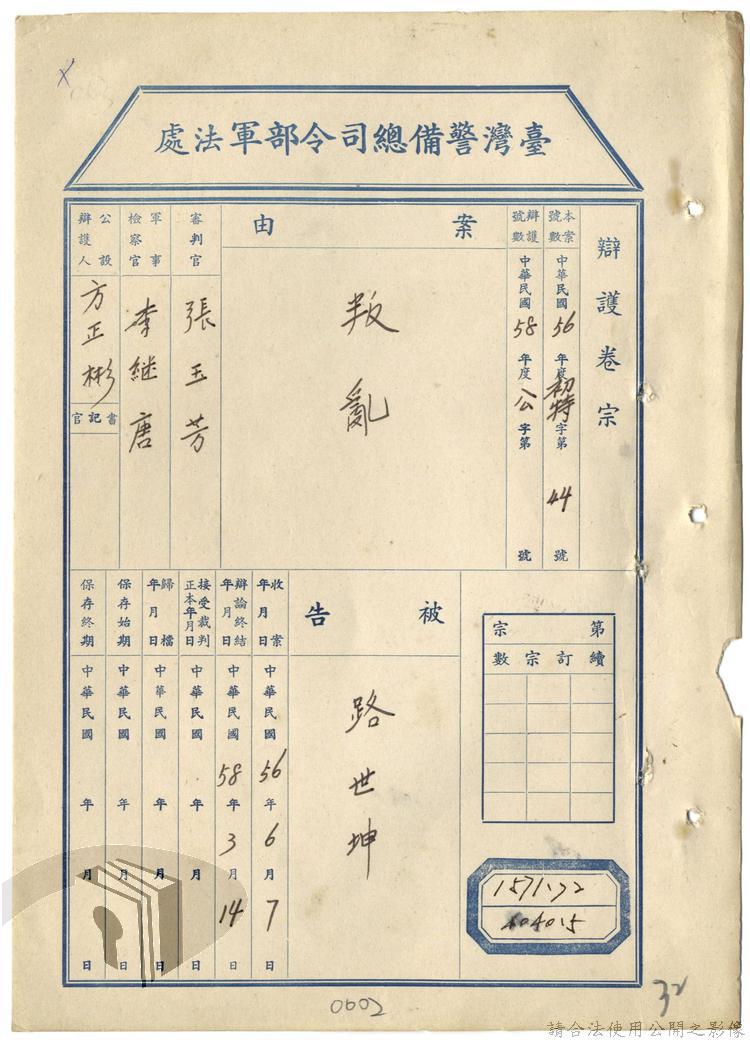 臺灣警備總司令部軍法處
辯護卷宗
本案號數 中華民國56年度初特字第44號
辯護號數 中華民國58年度公字第 號
案由
叛亂
審判官 張玉芳
軍事檢察官 李継唐
公設辯護人 方正彬
書記官
第 宗
續訂宗數
被告
路世坤
收案年月日 中華民國56年6月7日
辯論終結年月日 中華民國58年3月14日
接受裁判正本年月日 中華民國 年 月 日
歸檔年月日 中華民國 年 月 日
保存始期 中華民國 年 月 日
保存終期 中華民國 年 月 日
1571.72
0002
32
請合法使用公開之影像